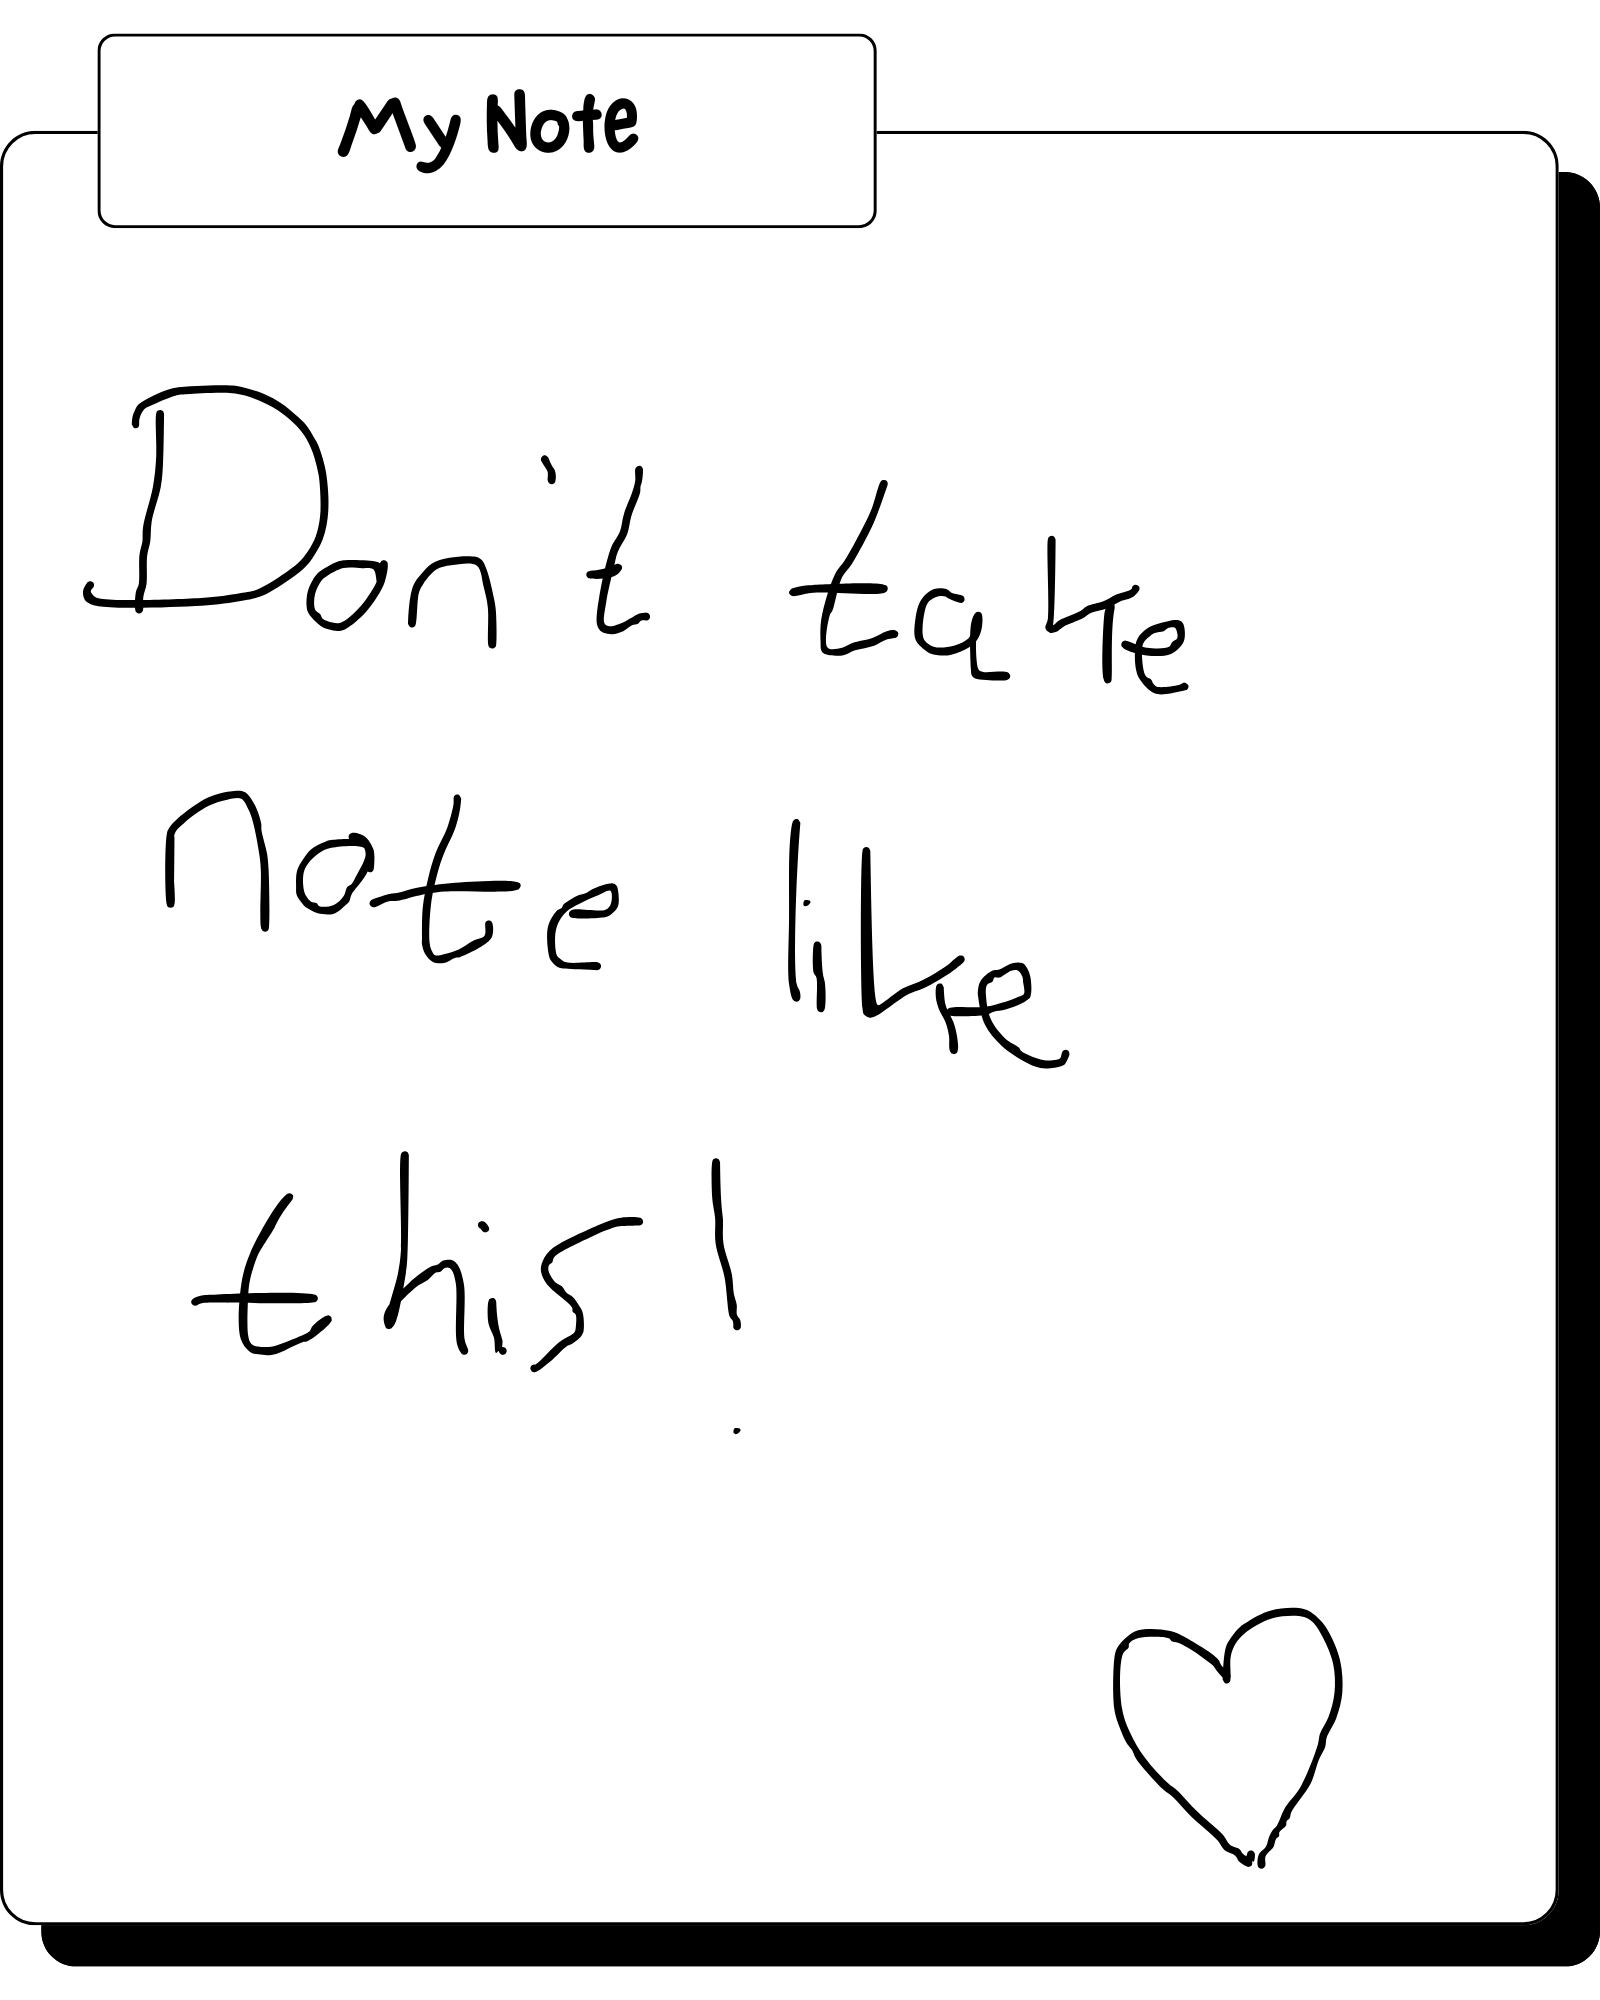 My Note
Don't take
note like
this!